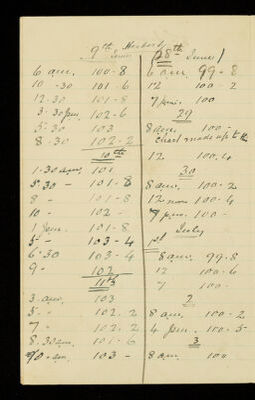 9th Herbert
June
6 am. 100-8
10-30 101-6
12.30 101-8
3.30 pm. 102-6
5.30 103
8.30 102-2
10th
1-30 am. 101
5.30 - 101-8
8 - 101-8
10 - 102 -
1 pm. 101-8
5 - 103-4
6.30 103-4
9 - 102
11th
3 am. 103
5 - 102.2
7 " 102.2
8.30 am. 101-6
10 am. 103 -
(28th June)
6 am. 99-8
12 100-2
7 pm. 100
29
8 am. 100 -
chart made up to the
12 100.4
30
8 am. 100-2
12 noon 100-4
7 pm. 100 -
July
1st
8 am. 99-8
12 100-6
7 100 -
2
8 am. 100-2
4 pm. 100-5
3
8 am. 100